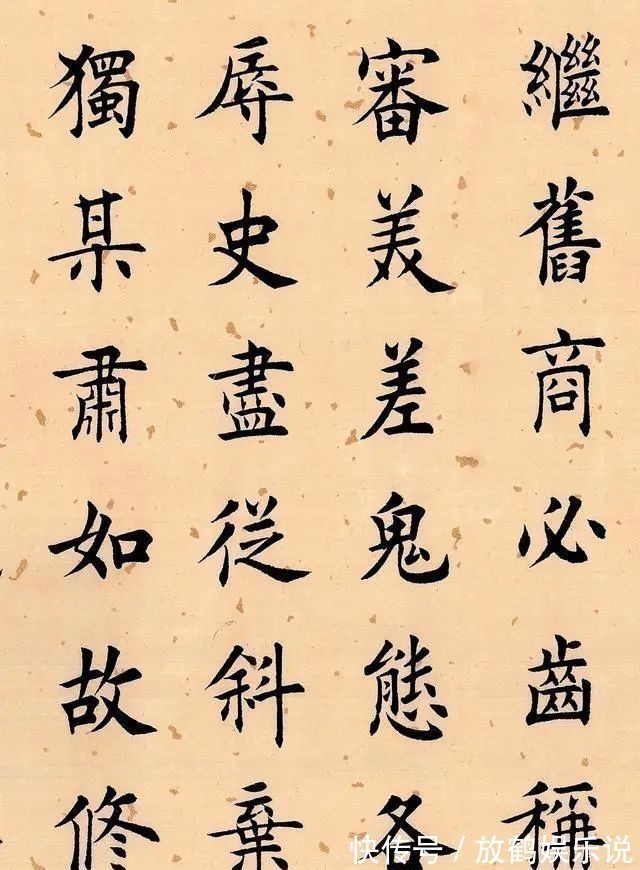 繼舊商必齒稱
審美差鬼態各
辱史盡從斜棄
獨某肅如故修
快传号/放鹤娱乐说